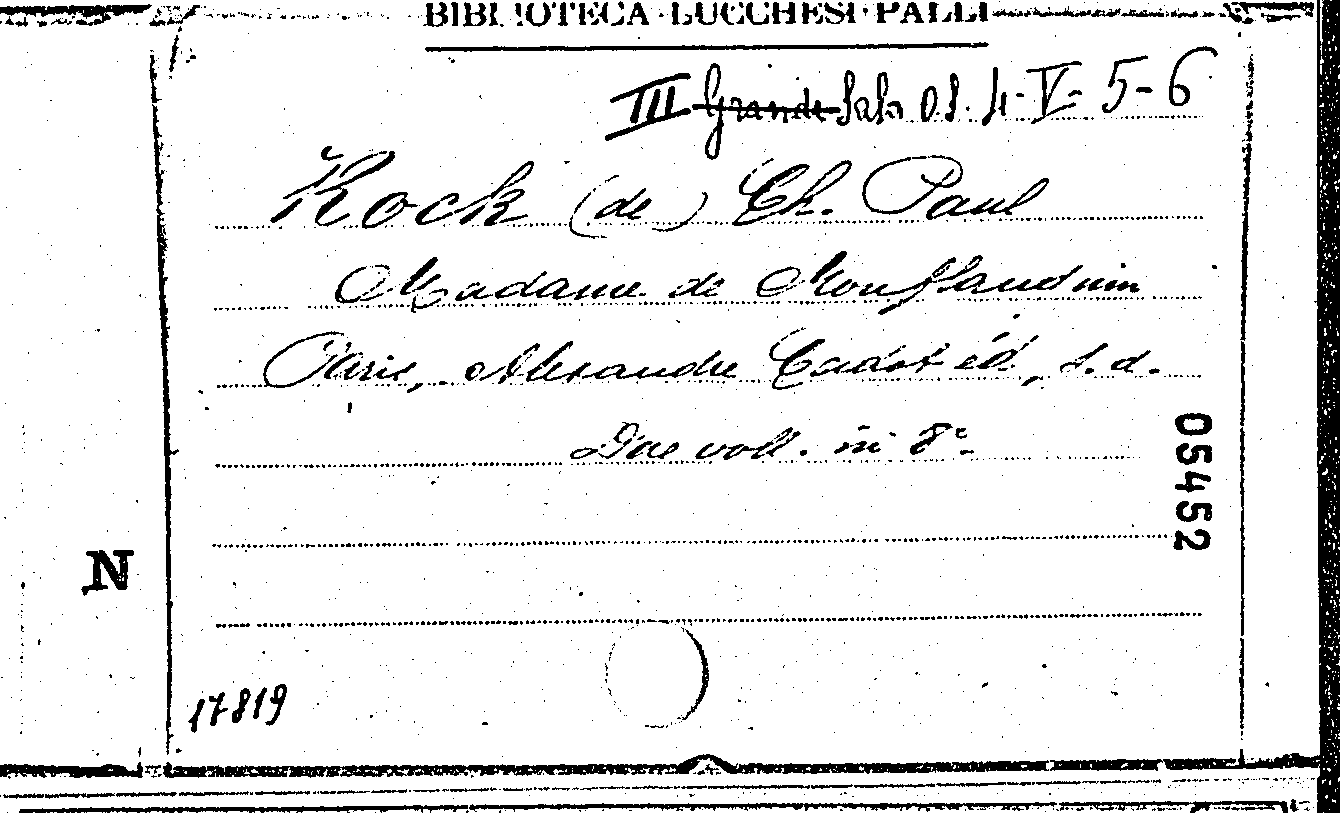 BIBLIOTECA · LUCCHESI · PALLI
III Grande Sala 01. 4-V-5-6
Kock (de) Ch. Paul
Madame de Monflanquin
Paris, Alexandre Cadot éd., s. d.
Due voll. in 8º-
05452
N
17819